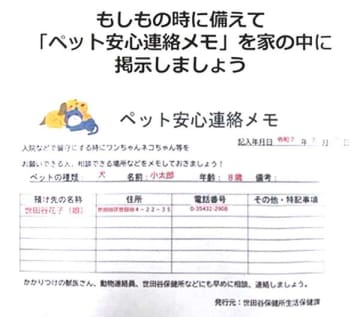 もしもの時に備えて
「ペット安心連絡メモ」を家の中に
掲示しましょう
ペット安心連絡メモ
記入年月日 令和7年 月 日
入院などで留守にする時にワンちゃんネコちゃん等を
お願いできる人、相談できる場所などをメモしておきましょう!
ペットの種類: 犬 名前:小太郎 年齢: 8歳 備考:
預け先の名称 住所 電話番号 その他・特記事項
世田谷花子(娘) 世田谷区世田谷4-22-35 0-35432-2908
かかりつけの獣医さん、動物連絡員、世田谷保健所などにも早めに相談、連絡しましょう。
発行元:世田谷保健所生活保健課